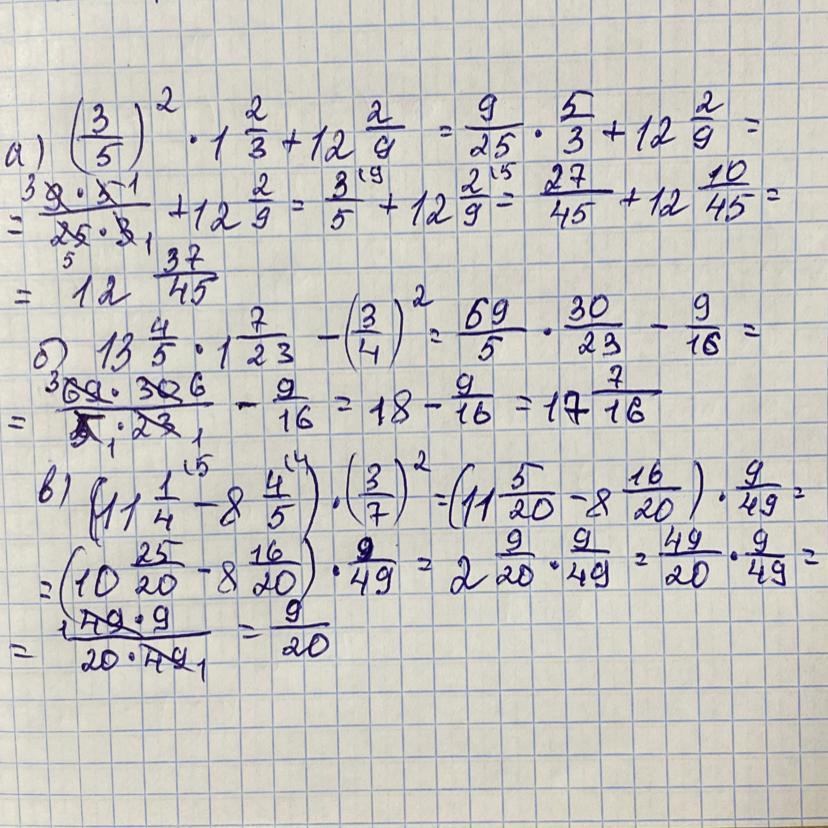 а) (3/5)² · 1 2/3 + 12 2/9 = 9/25 · 5/3 + 12 2/9 =
= (9 · 5)/(25 · 3) + 12 2/9 = 3/5 + 12 2/9 = 27/45 + 12 10/45 =
= 12 37/45
б) 13 4/5 · 1 7/23 − (3/4)² = 69/5 · 30/23 − 9/16 =
= (69 · 30)/(5 · 23) − 9/16 = 18 − 9/16 = 17 7/16
в) (11 1/4 − 8 4/5) · (3/7)² = (11 5/20 − 8 16/20) · 9/49 =
= (10 25/20 − 8 16/20) · 9/49 = 2 9/20 · 9/49 = 49/20 · 9/49 =
= (49 · 9)/(20 · 49) = 9/20